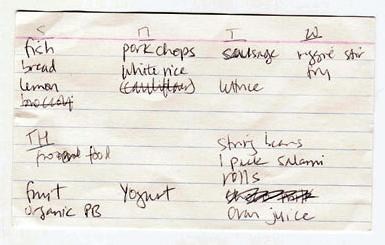 S M T W
fish pork chops sausage veggie stir
bread white rice fry
lemon (cauliflower) lettuce
broccoli
TH string beans
frozen food 1 pack salami
rolls
fruit Yogurt
organic PB oran juice